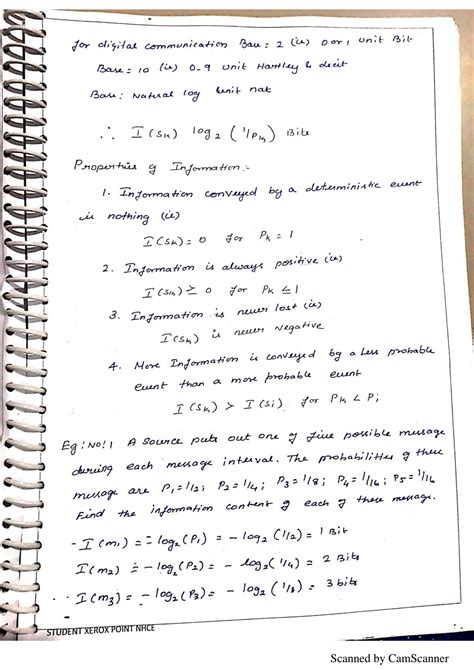 for digital communication Base = 2 (ie) 0 or 1 Unit Bit
Base = 10 (ie) 0-9 unit Hartley & decit
Base: Natural log Unit nat
∴ I(Sk) log2 (1/Pk) Bits
Properties of Information:-
1. Information conveyed by a deterministic event
is nothing (ie)
I(Sk) = 0 for Pk = 1
2. Information is always positive (ie)
I(Sk) ≥ 0 for Pk ≤ 1
3. Information is never lost (ie)
I(Sk) is never Negative
4. More Information is conveyed by a less probable
event than a more probable event
I(Sk) > I(Si) for Pk < Pi
Eg: No: 1 A Source puts out one of five possible message
during each message interval. The probabilities of these
message are P1 = 1/2; P2 = 1/4; P3 = 1/8; P4 = 1/16; P5 = 1/16
Find the information content of each of these message.
I(m1) = -log2(P1) = -log2(1/2) = 1 Bit
I(m2) = -log2(P2) = -log2(1/4) = 2 Bits
∴ I(m3) = -log2(P3) = -log2(1/8) = 3 bits
STUDENT XEROX POINT NHCE
Scanned by CamScanner